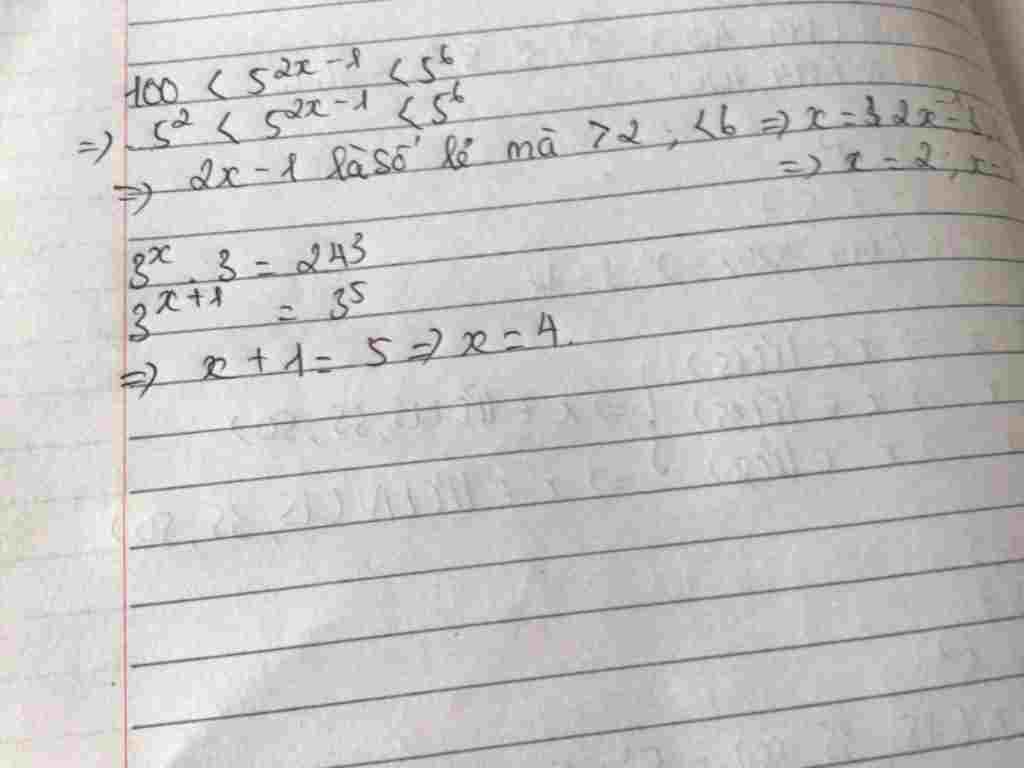 100 < 5^{2x-1} < 5^6
=> 5^2 < 5^{2x-1} < 5^6
=> 2x-1 là số lẻ mà >2 ; <6 =>
=> x = 2 ; x
3^x . 3 = 243
3^{x+1} = 3^5
=> x + 1 = 5 => x = 4.